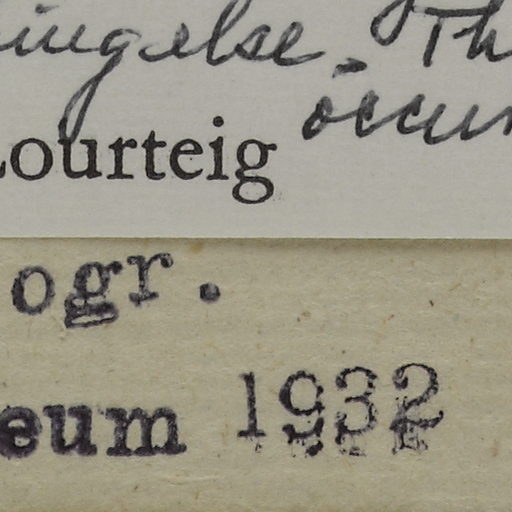 ingelse. Th
occur
Lourteig
ogr.
eum 1932